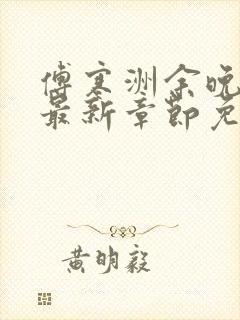 傅寒洲余晚
最新章节免
黄明毅